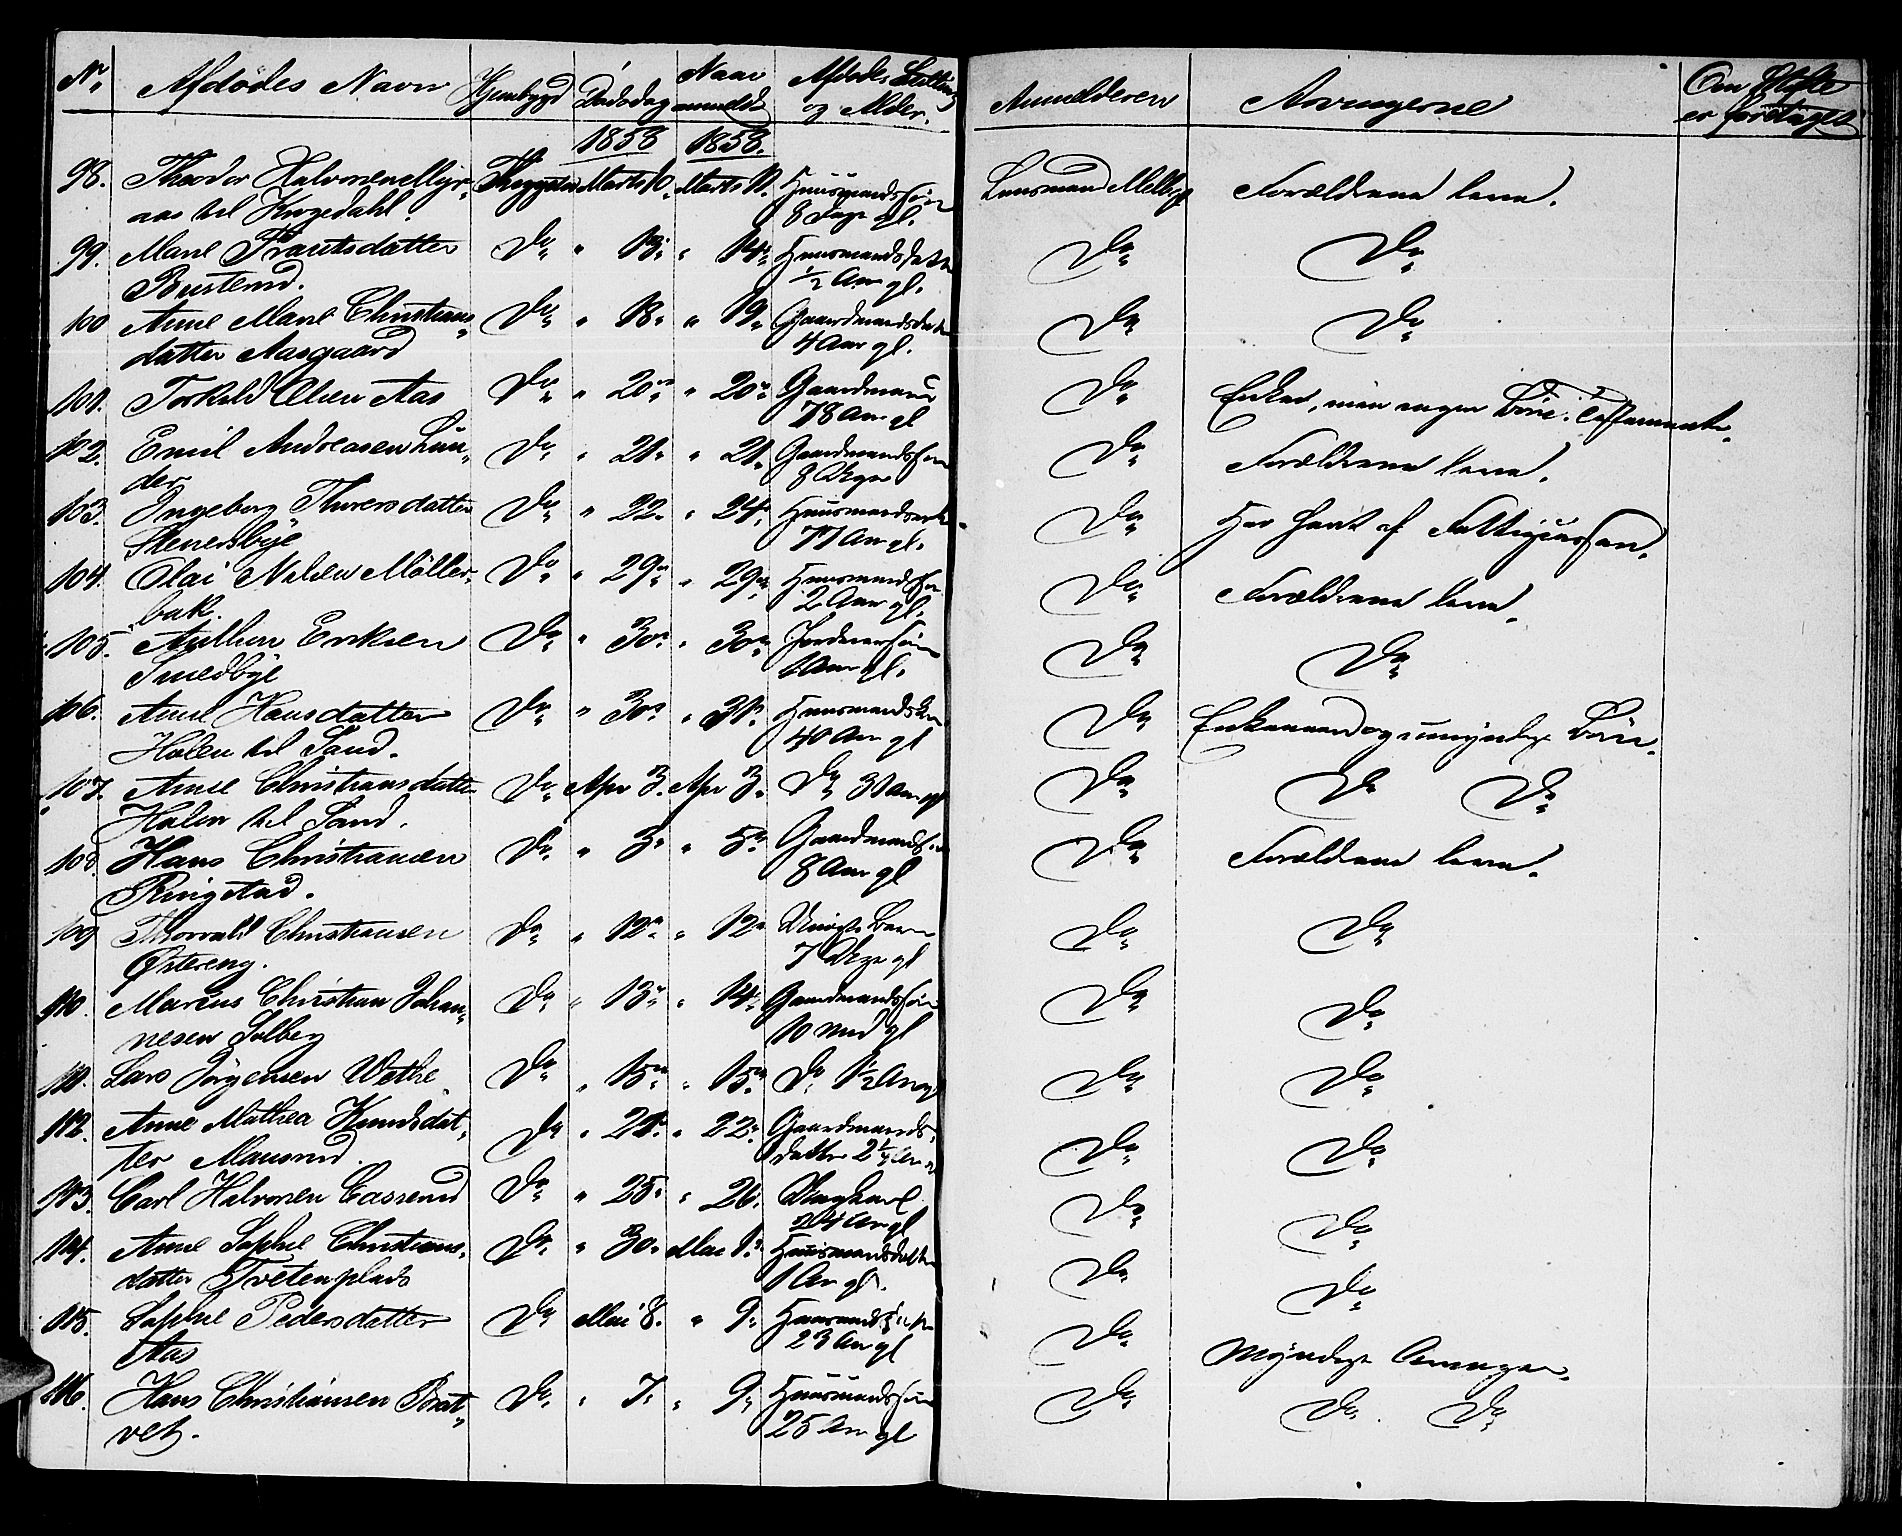 No. Afdödes Navn Hjembygd Dødsdag Naar anmeldt Afdødes Stilling og Alder. Anmelderen Arvingerne Om Skifte er foretaget
1858 1858.
98. Theodor Halvorsen Myr- Marts 10. Marts 11. Huusmandssøn Lensmand Melbye Forældrene leve.
aas til Krogedahl. 8 Dage gl.
99. Marie Frantsdatter Do " 13. " 14. Huusmandsdatter Do Do
Busterud. 1/2 Aar gl.
100 Anne Marie Christians- Do " 18. " 19. Gaardmandsdatter Do Do
datter Aasgaard 4 Aar gl.
101. Torkild Olsen Aas Do " 20. " 20. Gaardmand Do Enke, men ingen Børn. Testamente.
78 Aar gl
102. Emil Andreasen Lun- Do " 21. " 21. Gaardmandssøn Do Forældrene leve.
der 8 Uger
103. Ingeborg Thoresdatter Do " 22. " 24. Huusmandsenke Do Har havt af Fattigcassen.
Stenersbye 77 Aar gl.
104. Olai Nilsen Møller- Do " 29. " 29. Huusmandssøn Do Forældrene leve.
bak. 2 Aar gl.
105. Anthon Eriksen Do " 30. " 30. Do Do
Smedbye 1 Aar gl.
106. Anne Hansdatter Do " 30. " 31. Huusmandskone Do Enkemand og umyndige Børn.
Holen til Sand. 40 Aar gl
107. Anne Christiansdatter Do Apr 3. Apr 3. Do 30 Aar gl Do Do Do
Holen til Sand.
108. Hans Christiansen Do " 3. " 5. Gaardmandssøn Do Forældrene leve.
Ringstad. 8 Aar gl
109 Thorvald Christiansen Do " 12. " 12. Uægte Barn Do Do
Østereng. 7 Uger gl
110. Marius Christian Johan- Do " 13. " 14. Gaardmandssøn Do Do
nesen Solberg 10 Mnd gl
111. Lars Jörgensen Wethe. Do " 15. " 15. Do 1 1/2 Aar gl Do Do
112. Anne Mathea Knudsdat- Do " 21. " 22. Gaardmands- Do Do
ter Mausrud. datter
113. Carl Halvorsen Casserud Do " 25. " 26. Ungkarl Do Do
24 Aar gl
114. Anne Sophie Christians- Do " 30. Mai 1. Huusmandsdatter Do Do
datter Tvetenplads 1 Aar gl.
115. Sophie Pedersdatter Do Mai 8. " 9. Do Myndige Arvinger.
Aas 23 Aar gl
116. Hans Christiansen Brat- Do " 7. " 9. Huusmandssøn Do Do Do
vet. 25 Aar gl